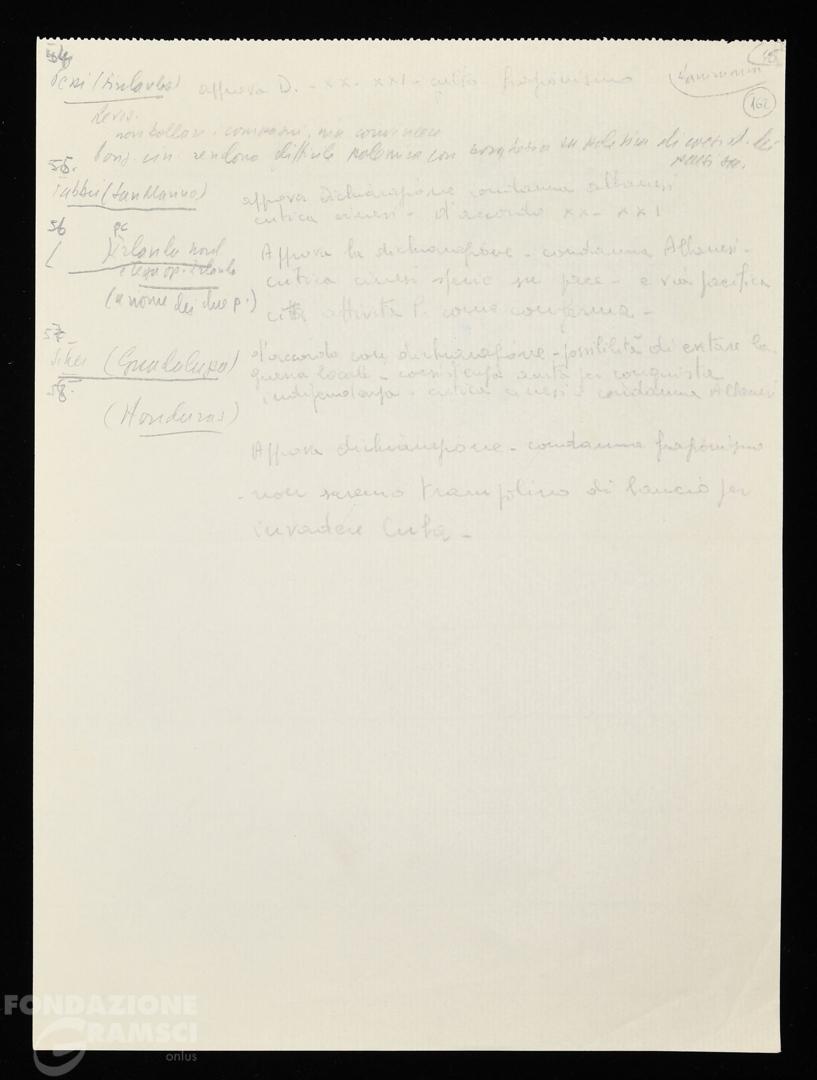 54
Pessi (Finlandia) approva D. - XX - XXI - culto frazionismo
162
Revis.
non bollare i compagni, ma convincere
rendono difficile polemica con
55.
(San Marino) approva Dichiarazione condanna albanesi
critica cinesi - d'accordo XX - XXI
56
pc
Irlanda nord
e lega op. irlanda
(a nome dei due p.)
Approva la dichiarazione - condanna Albanesi -
critica cinesi specie su pace - e via pacifica
attività P. come conferma -
57
(Guadalupa) d'accordo con dichiarazione - possibilità di evitare la
guerra locale - coesistenza aiuta per conquista
indipendenza - critica cinesi - condanna Albanesi
58.
(Honduras)
Approva dichiarazione - condanna frazionismo
- non saremo trampolino di lancio per
invadere Cuba -
FONDAZIONE
GRAMSCI
onlus